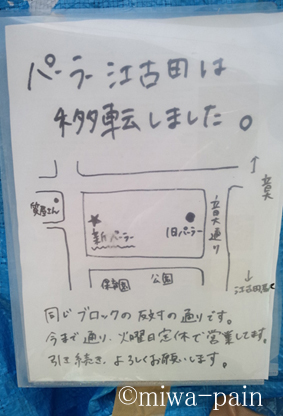 パーラー江古田は
移転しました。
↑
音大
質屋さん
★
新パーラー
旧パーラー
音大通り
保育園
公園
↓
江古田駅
同じブロックの反対の通りです。
今まで通り、火曜日定休で営業してます。
引き続き、よろしくお願いします。
©miwa-pain